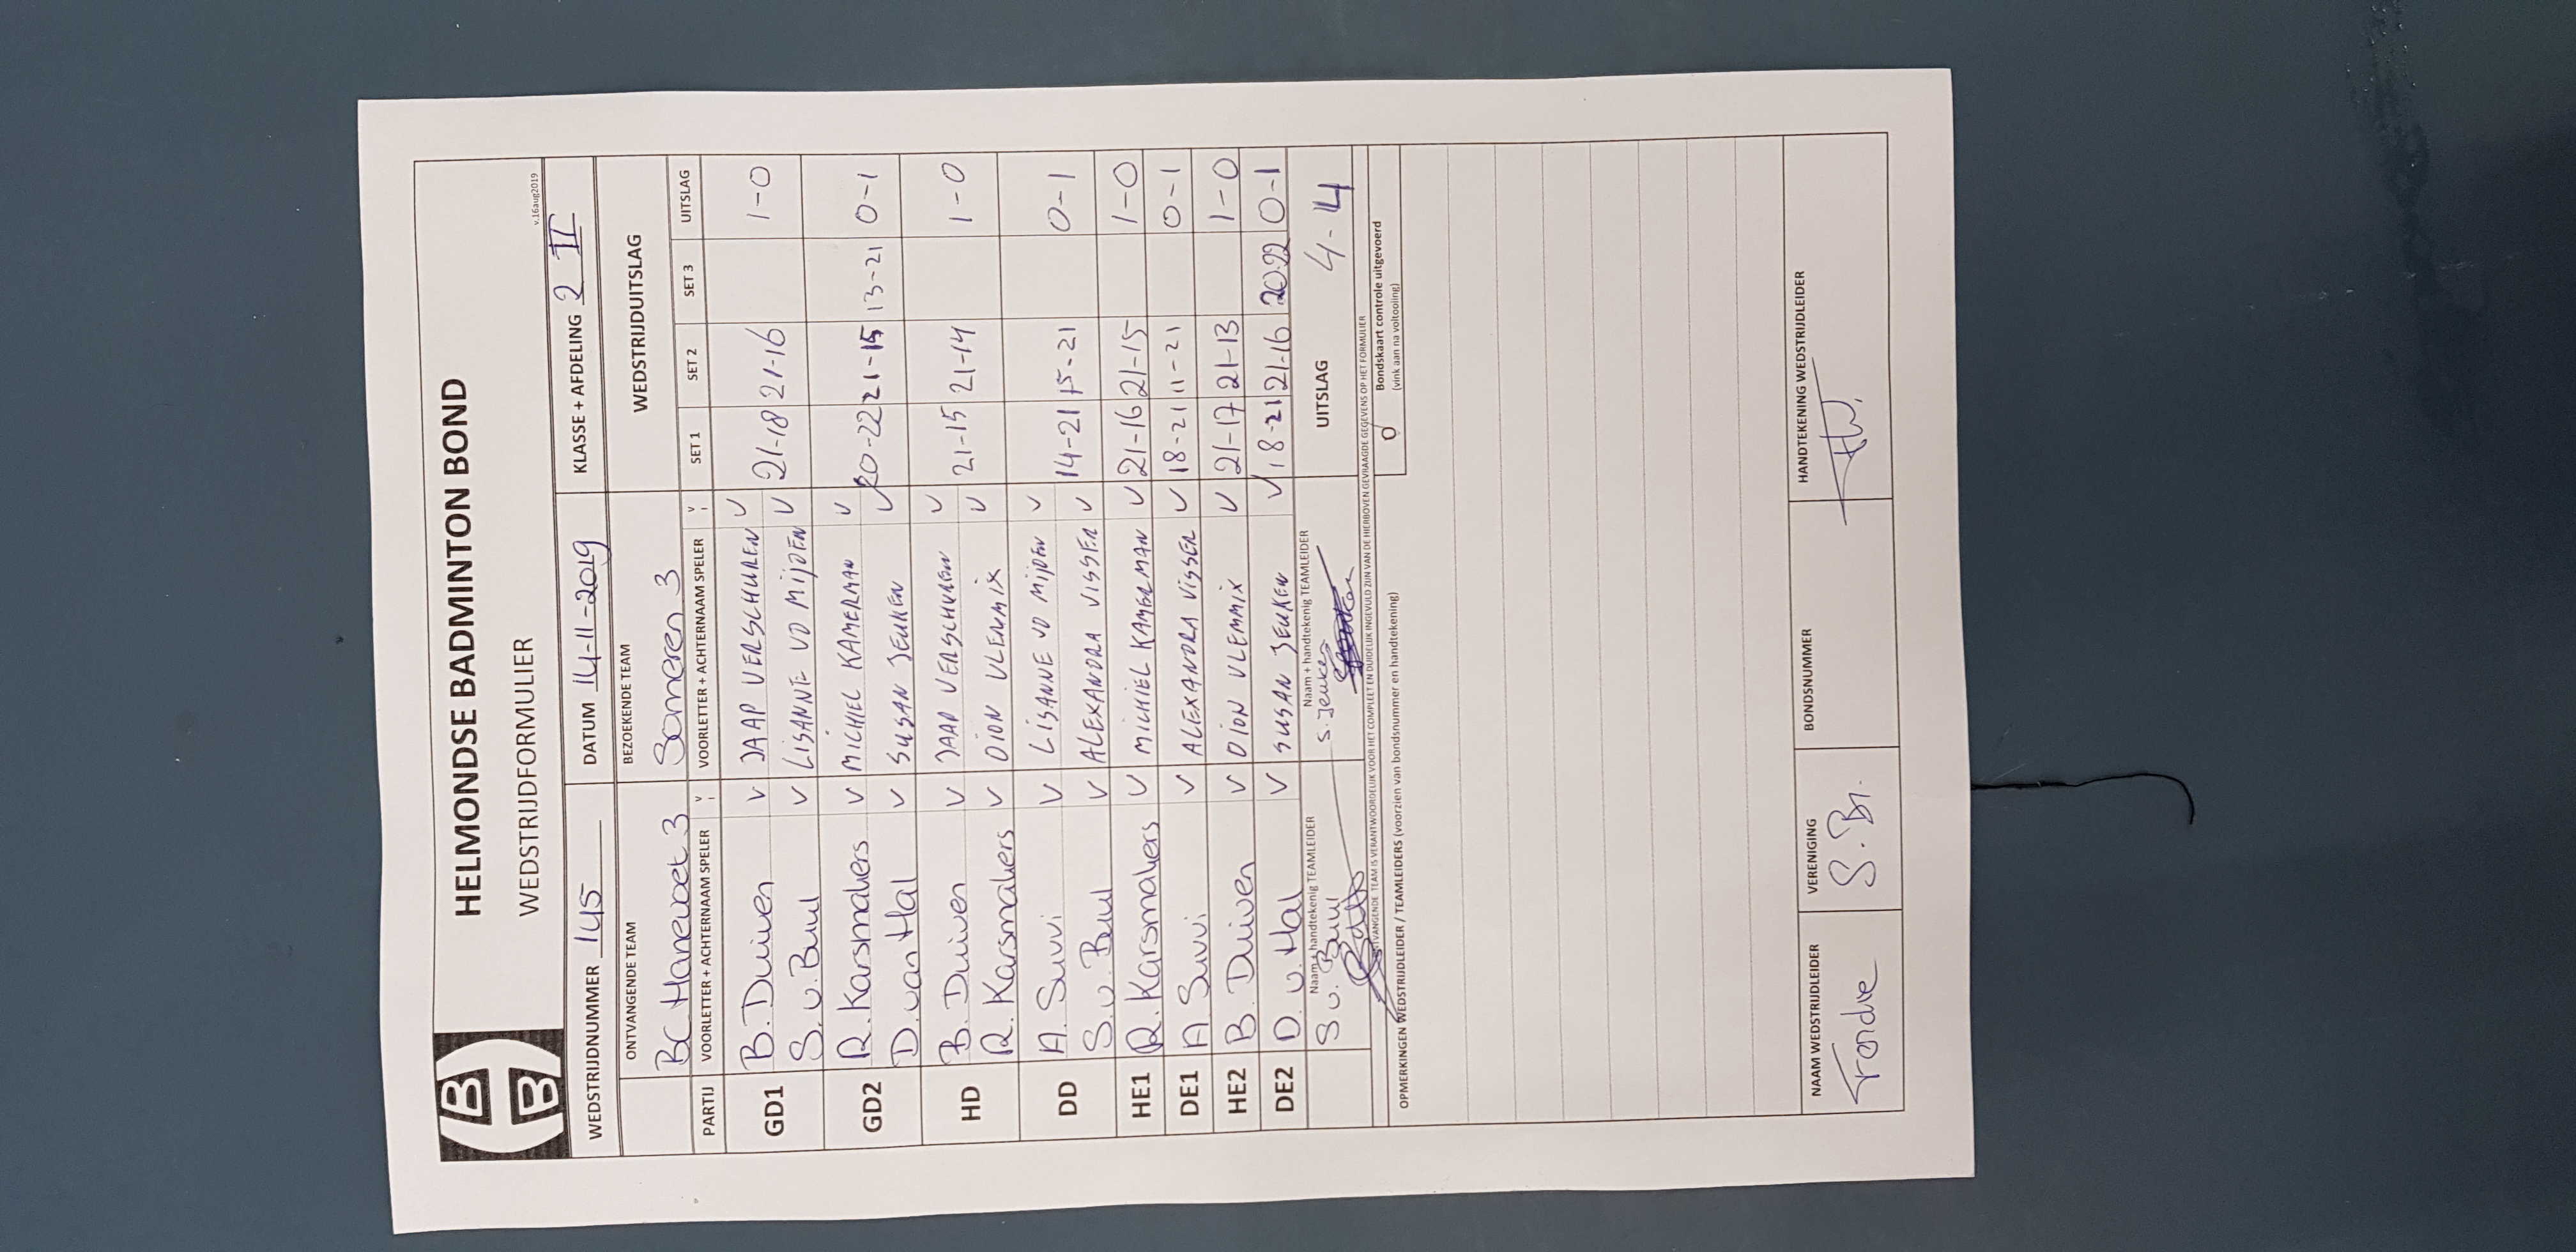 HELMONDSE BADMINTON BOND
WEDSTRIJDFORMULIER
v.16aug2019
WEDSTRIJDNUMMER 145 DATUM 14-11-2019 KLASSE + AFDELING 2 II
ONTVANGENDE TEAM BEZOEKENDE TEAM WEDSTRIJDUITSLAG
BC Hanevoet 3 Someren 3
PARTIJ VOORLETTER + ACHTERNAAM SPELER V VOORLETTER + ACHTERNAAM SPELER V SET 1 SET 2 SET 3 UITSLAG
GD1 B. Duiven V JAAP VERSCHUREN V 21-18 21-16 1-0
S. v. Buul V LISANNE VD MIJDEN V
GD2 R. Karsmakers V MICHIEL KAMERMAN V 20-22 21-15 13-21 0-1
D. van Hal V SUSAN JEUKEN V
HD B. Duiven V JAAP VERSCHUREN V 21-15 21-14 1-0
R. Karsmakers V DION VLEMMIX V
DD A. Suvvi V LISANNE VD MIJDEN V 14-21 15-21 0-1
S. v. Buul V ALEXANDRA VISSER V
HE1 R. Karsmakers V MICHIEL KAMERMAN V 21-16 21-15 1-0
DE1 A Suvvi V ALEXANDRA VISSER V 18-21 11-21 0-1
HE2 B. Duiven V DION VLEMMIX V 21-17 21-13 1-0
DE2 D. v. Hal V SUSAN JEUKEN V 18-21 21-16 20-22 0-1
Naam + handtekenig TEAMLEIDER Naam + handtekenig TEAMLEIDER UITSLAG 4-4
S v. Buul S. Jeuken
ONTVANGENDE TEAM IS VERANTWOORDELIJK VOOR HET COMPLEET EN DUIDELIJK INGEVULD ZIJN VAN DE HIERBOVEN GEVRAAGDE GEGEVENS OP HET FORMULIER
Bondskaart controle uitgevoerd
(vink aan na voltooiing)
OPMERKINGEN WEDSTRIJDLEIDER / TEAMLEIDERS (voorzien van bondsnummer en handtekening)
NAAM WEDSTRIJDLEIDER VERENIGING BONDSNUMMER HANDTEKENING WEDSTRIJDLEIDER
S. Br.